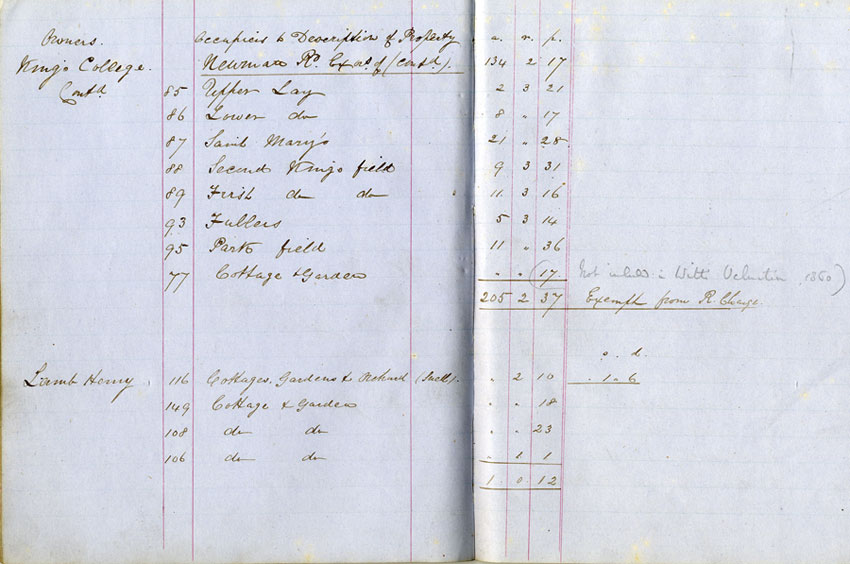 Owners. Occupiers & Description of Property a. r. p.
Kings College. Newman Rd Exors of (Contd). 134 2 17
Contd 85 Upper Lay 2 3 21
86 Lower do 8 " 17
87 Saint Mary's 21 " 28
88 Second Kings field 9 3 31
89 First do do 11 3 16
93 Fullers 5 3 14
95 Park field 11 " 36
77 Cottage & Garden " " (17. Not in Valuation 1860)
205 2 37 Exempt from R Charge.
s. d.
Lamb Henry. 116 Cottages, Gardens & Orchard (Snell). " 2 10 . 1. 6
149 Cottage & Garden " " 18
108 do do " " 23
106 do do " 1 1
1 0 12